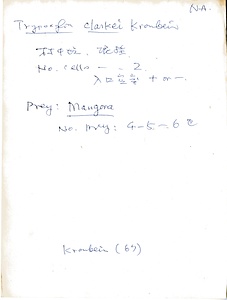 N.A.
Trypoxylon clarkei Krombein
No. cells — — 2
入口 + or —
Prey: Mangora
No. prey: 4-5-6
Krombein (67)